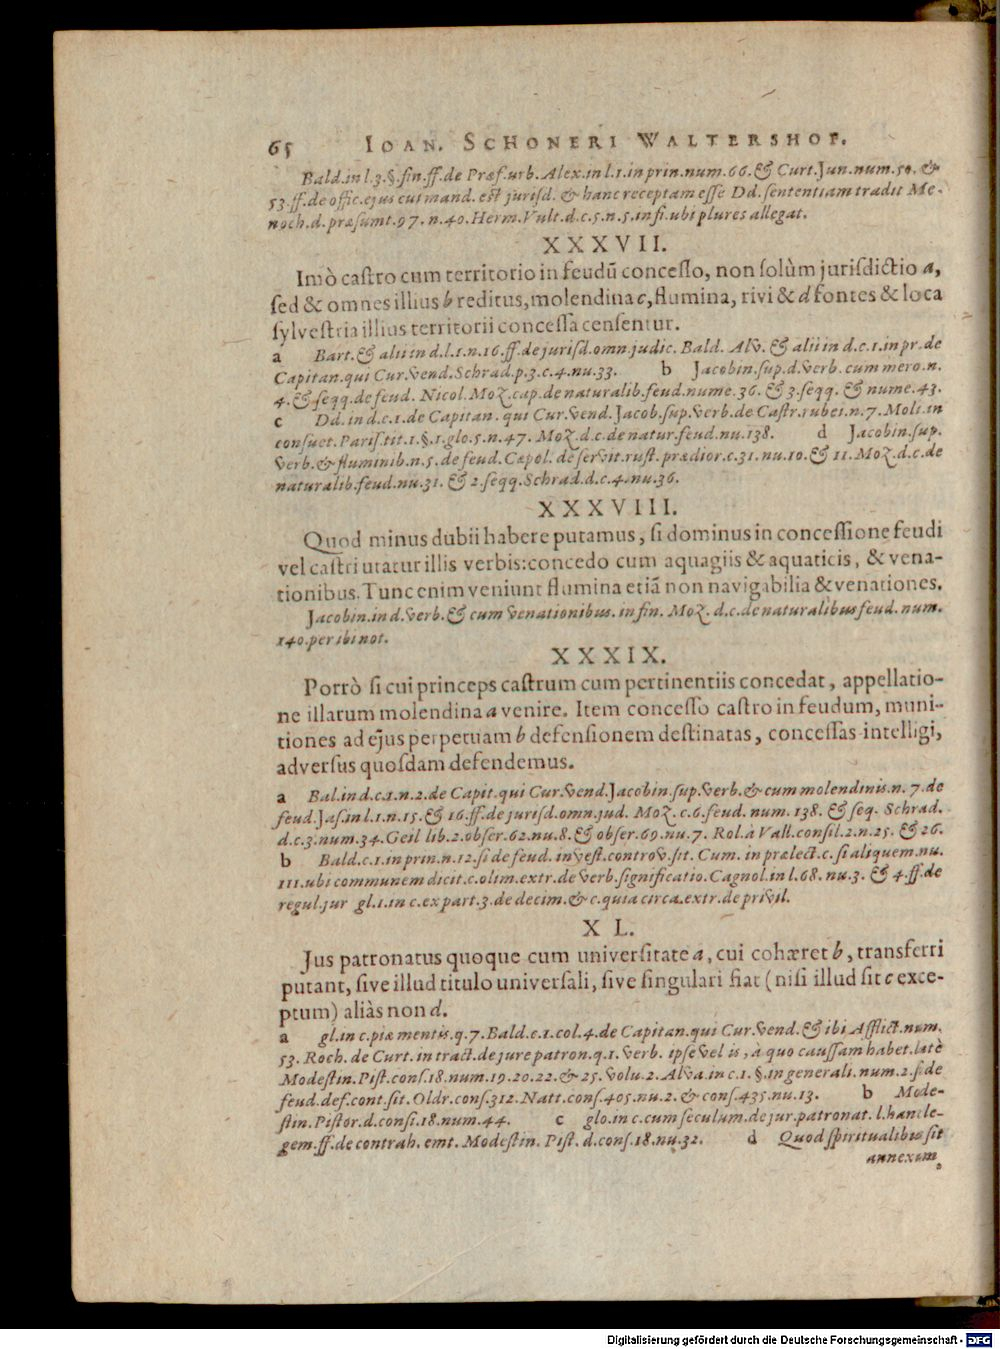 65 IOAN. SCHONERI WALTERSHOF.
Bald.in l.3.§.fin.ff.de Præf.urb. Alex.in l.1.in prin.num.66.& Curt.Jun.num.50. &
53.ff.de offic.ejus cui mand. est jurisd. & hanc receptam esse Dd. sententiam tradit Me-
noch.d.præsumt.97. n.40.Herm.Vult.d.c.5.n.5.infi.ubi plures allegat.
XXXVII.
Imò castro cum territorio in feudū concesso, non solùm jurisdictio a,
sed & omnes illius b reditus, molendina c, flumina, rivi & d fontes & loca
sylvestria illius territorii concessa censentur.
a Bart.& alii in d.l.1.n.16.ff.de jurisd.omn.judic. Bald. Alv. & alii in d.c.1.in pr.de
Capitan.qui Cur.Vend.Schrad.p.3.c.4.nu.33. b Jacobin.sup.d.Verb.cum mero n.
4.& seqq.de feud. Nicol.Moz.cap.de naturalib.feud.nume.36. & 3.seqq. & nume.43.
c Dd.in d.c.1.de Capitan.qui Cur.Vend.Jacob.sup.Verb.de Castr.rubei.n.7.Moli.in
consuet.Paris.tit.1.§.1.glo.5.n.47. Moz.d.c.de natur.feud.nu.138. d Jacobin.sup.
Verb.& fluminib.n.5.de feud.Cæpol.de servit.rust.prædior.c.31.nu.10.& 11.Moz.d.c.de
naturalib.feud.nu.31. & 2.seqq.Schrad.d.c.4.nu.36.
XXXVIII.
Quod minus dubii habere putamus, si dominus in concessione feudi
vel castri utatur illis verbis: concedo cum aquagiis & aquaticis, & vena-
tionibus. Tunc enim veniunt flumina etiā non navigabilia & venationes.
Jacobin.in d.Verb.& cum Venationibus.in fin. Moz. d.c.de naturalibus feud. num.
140.per ibi not.
XXXIX.
Porrò si cui princeps castrum cum pertinentiis concedat, appellatio-
ne illarum molendina a venire. Item concesso castro in feudum, muni-
tiones ad ejus perpetuam b defensionem destinatas, concessas intelligi,
adversus quosdam defendemus.
a Bal.in d.c.1.n.2.de Capit.qui Cur.Vend.Jacobin.sup.Verb.& cum molendinis.n. 7.de
feud.Jas.in l.1.n.15.& 16.ff.de jurisd.omn.jud. Moz.c.6.feud. num. 138. & seq. Schrad.
d.c.3.num.34.Geil lib.2.obser.62.nu.8.& obser.69.nu.7. Rol.à Vall.consil.2.n.25. & 26.
b Bald.c.1.in prin.n.12.si de feud. invest.controv.sit. Cum. in prælect.c.si aliquem.nu.
111.ubi communem dicit.c.olim.extr.de Verb.significatio.Cagnol.in l.68. nu.3. & 4.ff.de
regul.jur gl.1.in c.ex part.3.de decim.& c.quia circa.extr.de privil.
XL.
Jus patronatus quoque cum universitate a, cui cohæret b, transferri
putant, sive illud titulo universali, sive singulari fiat (nisi illud sit c exce-
ptum) aliàs non d.
a gl.in c.piæ mentis.q.7.Bald.c.1.col.4.de Capitan.qui Cur.Vend.& ibi Afflict.num.
53. Roch. de Curt.in tract.de jure patron.q.1. Verb. ipse Vel is, à quo caussam habet.latè
Modestin.Pist.cons.18.num.19.20.22.& 25. Volu.2. Alva.in c.1.§.in generali.num.2.si de
feud.def.cont.sit.Oldr.cons.312.Natt.cons.405.nu.2.& cons.435.nu.13. b Mode-
stin.Pistor.d.consi.18.num.44. c glo.in c.cum seculum.de jur.patronat.l.hanc le-
gem.ff.de contrah.emt.Modestin. Pist.d.cons.18.nu.32. d Quod spiritualibus sit
annexum,
Digitalisierung gefördert durch die Deutsche Forschungsgemeinschaft - DFG